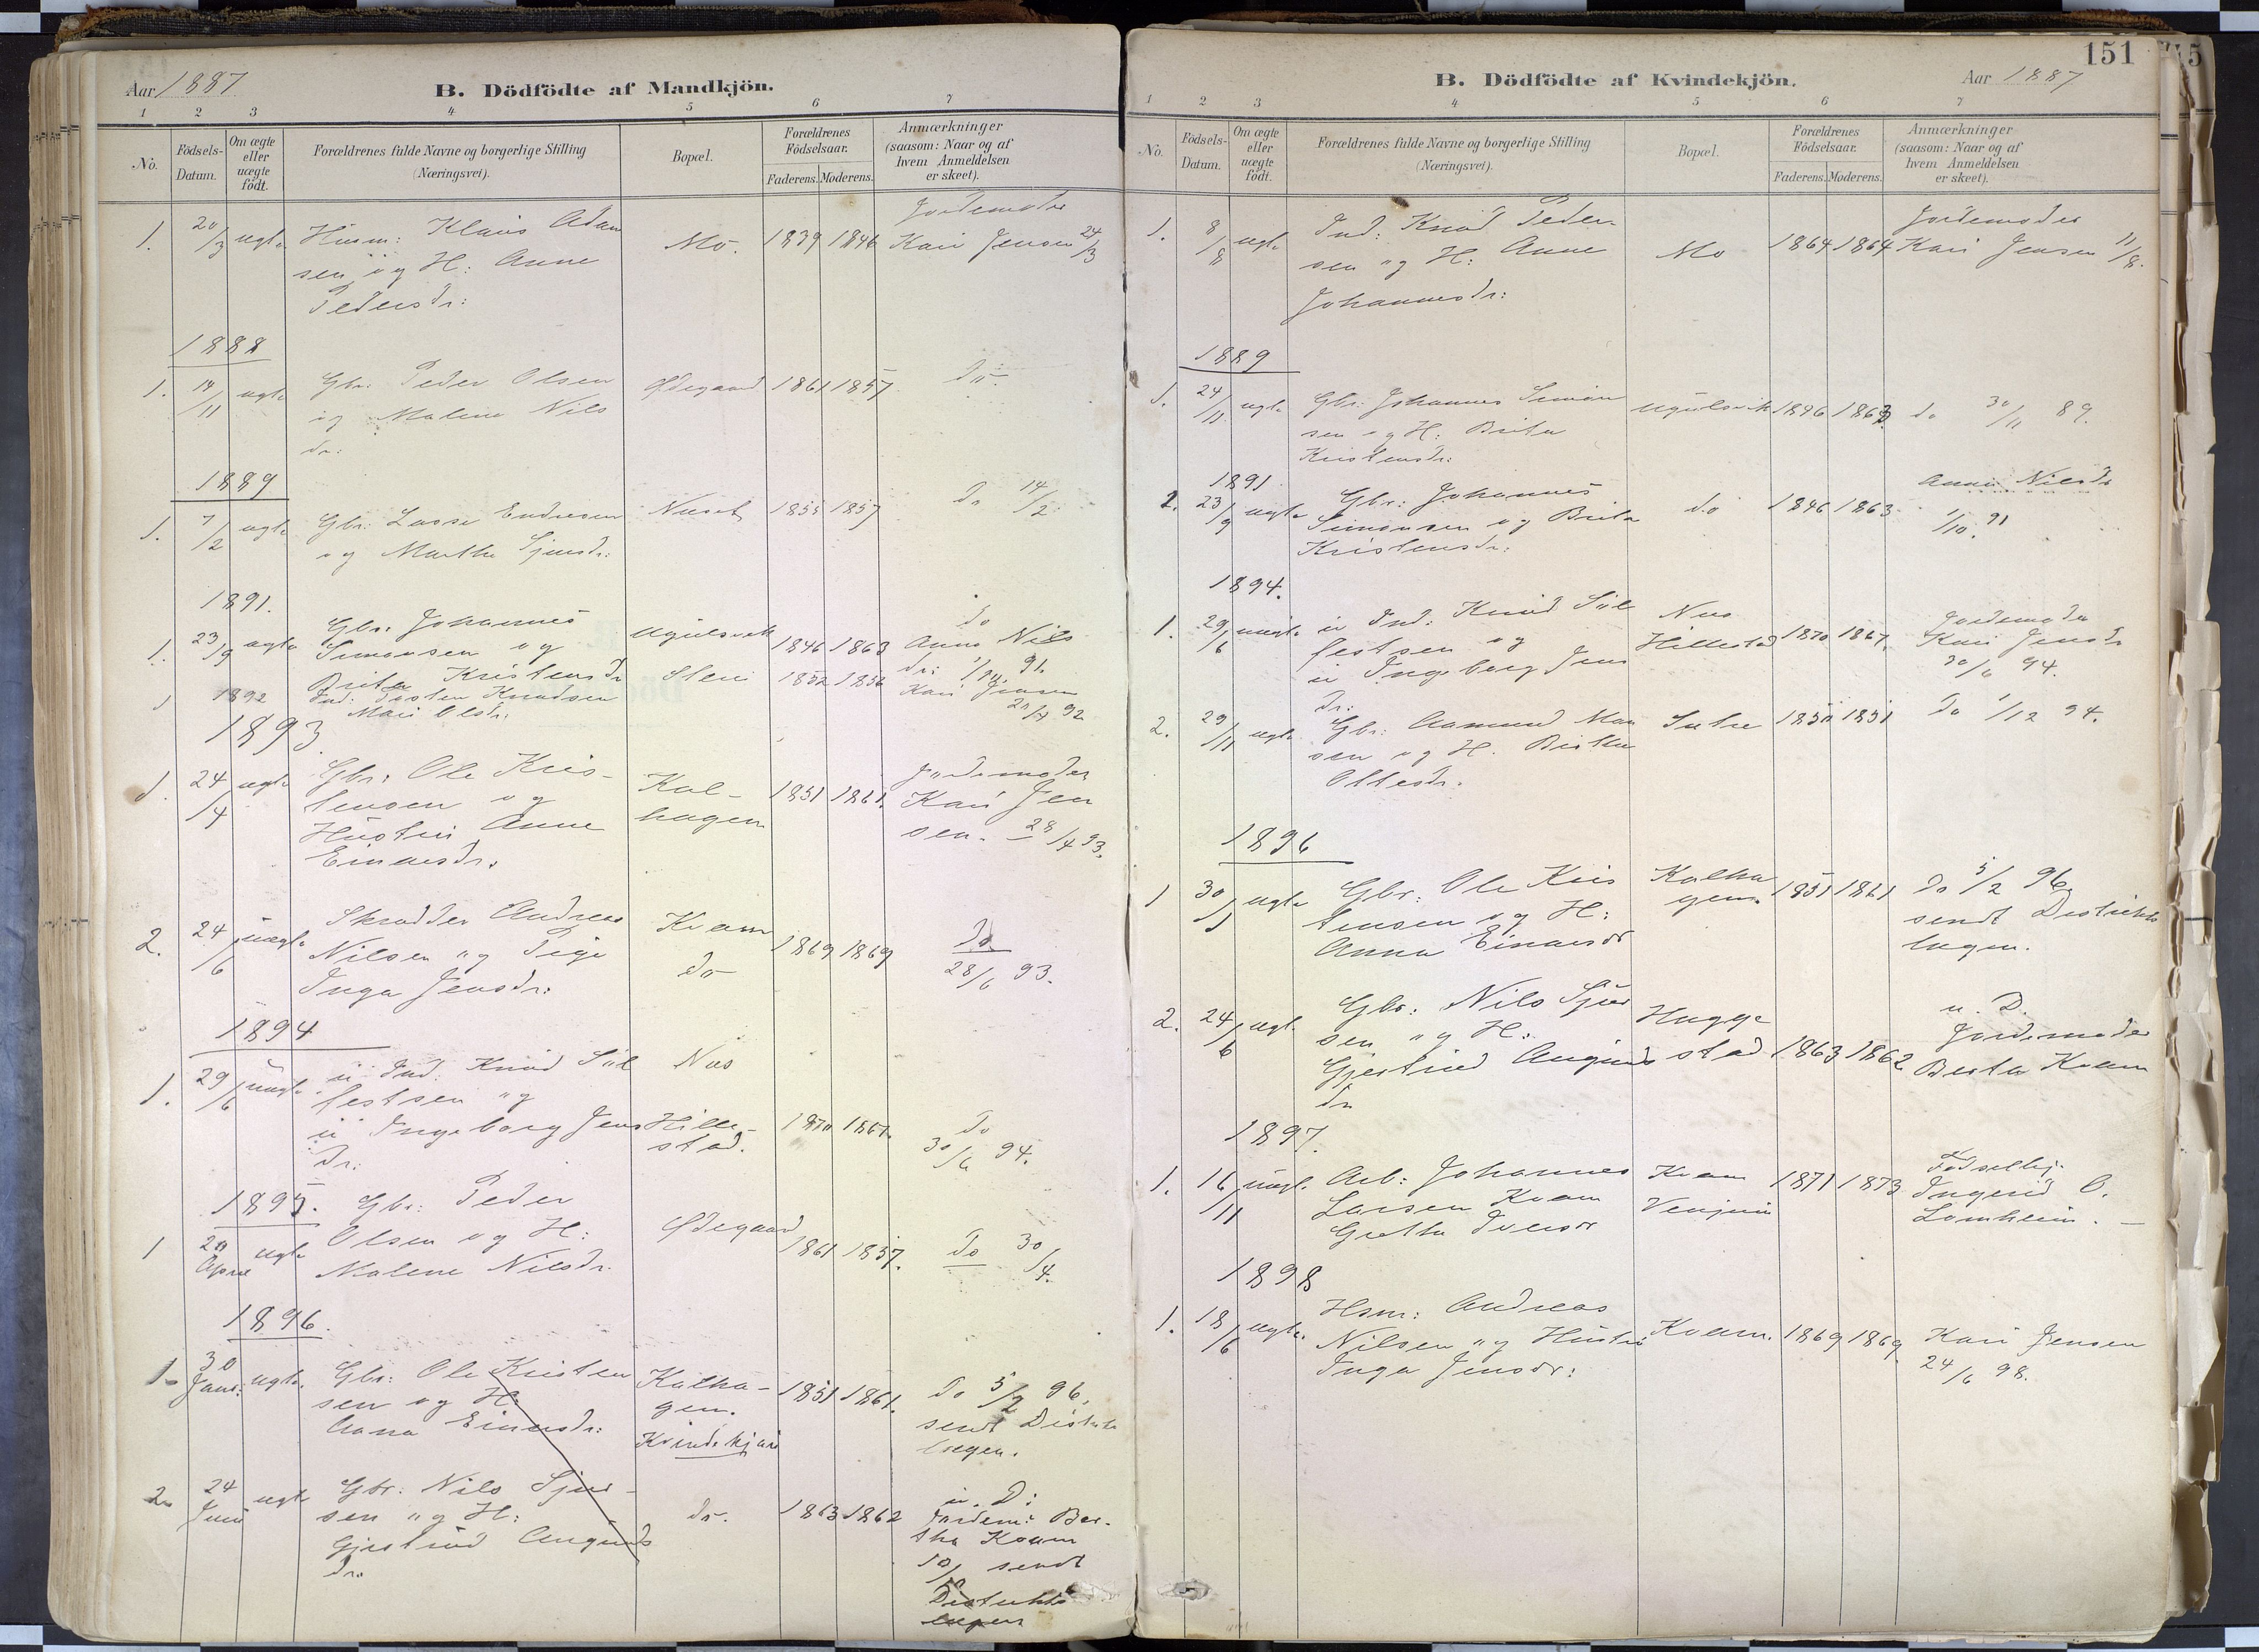 Aar 1887
B. Dödfödte af Mandkjön.
1 2 3 4 5 6 7
No.
Födsels-
Datum.
Om ægte
eller
uægte
födt.
Forældrenes fulde Navne og borgerlige Stilling
(Næringsvei).
Bopæl.
Forældrenes
Födselsaar.
Faderens. Moderens.
Anmærkninger
(saasom: Naar og af
hvem Anmeldelsen
er skeet).
1. 20/3 ægte Husm: Klaus Adam
sen og H: Anne
Pedersdr:
Mo. 1839 1846
Jordemoder
Kari Jensen 24/3
1888
1. 14/11 ægte Gbr: Peder Olsen
og Malene Nils
dr:
Ødegaard 1861 1857 do.
1889
1. 7/2 ægte Gbr: Lasse Endresen
og Martha Sjursdr:
Naset 1855 1857 do 14/2
1891.
1. 23/9 ægte Gbr: Johannes
Simonsen og
Brita Kristensdr
Ugulsvik 1846 1863
do
Anna Nils
dr: 1/10 91.
1 1892 Ind: Tosten Knudsen
Mari Olsdr:
Steni 1852 1856
Kari Jensen
20/7 92
1893
1. 24/4 ægte Gbr: Ole Kris-
tensen og
Hustru Anne
Einarsdr.
Kal-
hagen
1851 1861.
Jordemoder
Kari Jen
sen. 28/4 93.
2. 24/6 uægte Skrædder Andreas
Nilsen og Pige
Inga Jensdr:
Kvam
do
1869 1869
Do
28/6 93.
1894
1. 29/6 uægte u Ind. Knud Sül
festsen og
u Ingeborg Jens
dr:
Nes
Hille-
stad.
1870 1867.
Do
30/6 94.
1895.
1 20 April ægte Gbr: Peder
Olsen og H:
Malene Nilsdr.
Ødegaard 1861 1857. Do 30/4.
1896.
1. 30 Janr: ægte. Gbr: Ole Kristen
sen og H:
Anna Einarsdr:
Kalha-
gen.
Kvindekjøn
1851 1861.
Do 5/2 96.
sendt Distrikts
lægen.
2. 24 Juni ægte Gbr: Nils Sjur-
sen og H:
Gjertrud Augunds
dr.
do. 1863 1862
u. D:
Jordem: Ber-
tha Kvam
sendt
Distrikts
lægen
151
B. Dödfödte af Kvindekjön.
Aar 1887
1 2 3 4 5 6 7
No.
Födsels-
Datum.
Om ægte
eller
uægte
födt.
Forældrenes fulde Navne og borgerlige Stilling
(Næringsvei).
Bopæl.
Forældrenes
Födselsaar.
Faderens. Moderens.
Anmærkninger
(saasom: Naar og af
hvem Anmeldelsen
er skeet).
1. 8/8 ægte Ind: Knud Peder
sen og H: Anne
Johannesdr:
Mo 1864 1864
Jordemoder
Kari Jensen 11/8.
1889
1. 24/11 ægte Gbr: Johannes Simon
sen og H: Brita
Kristensdr:
Ugulsvik 1846 1863. do 30/11 89.
1891
2. 23/9 ægte Gbr: Johannes
Simonsen og Brita
Kristensdr:
do 1846 1863
Anna Nilsdr
1/10. 91
1894.
1. 29/6 uægte u Ind: Knud Sül
festsen og
u Ingeborg Jens
dr:
Nes
Hillestad
1870 1867.
Jordemoder
Kari Jensdr
30/6 94.
2. 29/11 ægte Gbr: Aamund Mon
sen og H. Brita
Ottesdr.
Indre 1850 1851 Do 1/12 94.
1896
1 30/1 ægte Gbr: Ole Kris
tensen og H:
Anna Einarsdr
Kalha
gen.
1851 1861
Do 5/2 96
sendt Distrikts
lægen.
2. 24/6 ægte Gbr: Nils Sjur
sen og H:
Gjertrud Augunds
dr
Hugge
stad
1863 1862
u. D.
Jordemoder
Berta Kvam
1897.
1. 16/11 uægt. Arb: Johannes
Larsen Kvam
Grethe Iversdr
Kvam
Venjum
1871 1873.
Fødselhj.
Ingerid O.
Lomheim.
1898
1. 18/6 ægte. Hsm: Andreas
Nilsen og Hustru
Inga Jensdr:
Kvam. 1869 1869.
Kari Jensen
24/6 98.